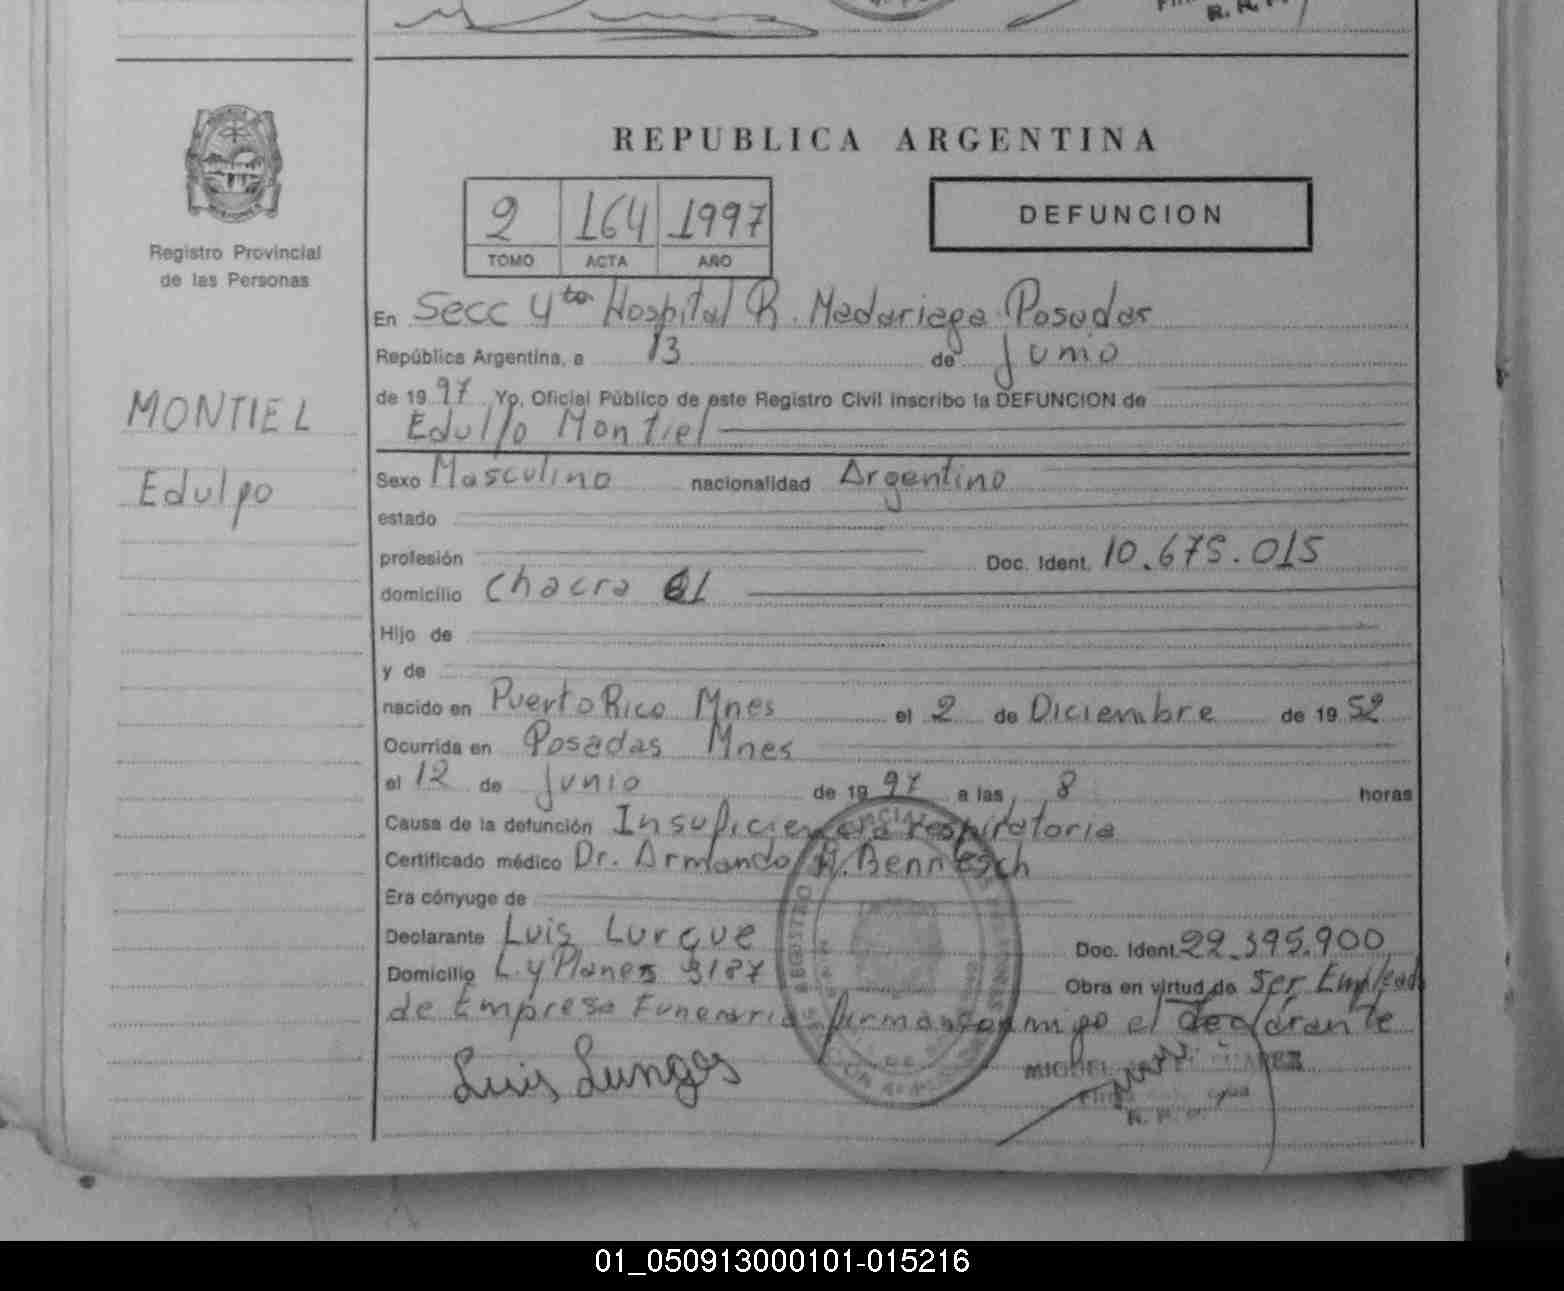 REPUBLICA ARGENTINA
2 164 1997
TOMO ACTA AÑO
DEFUNCION
Registro Provincial
de las Personas
MONTIEL
Edulfo
En Secc 4ta Hospital R. Madariaga Posadas
República Argentina, a 13 de junio
de 1997 Yo, Oficial Público de este Registro Civil inscribo la DEFUNCION de
Edulfo Montiel
Sexo Masculino nacionalidad Argentino
estado
profesión Doc. Ident. 10.675.015
domicilio Chacra
Hijo de
y de
nacido en Puerto Rico Mnes el 2 de Diciembre de 1952
Ocurrida en Posadas Mnes
el 12 de junio de 1997 a las 8 horas
Causa de la defunción Insuficiencia respiratoria
Certificado médico Dr. Armando A. Bennesch
Era cónyuge de
Declarante Luis Lurque Doc. Ident. 22.395.900
Domicilio L. y Planes 3187 Obra en virtud de Ser Emplead
de Empresa Funeraria firmando conmigo el declarante
Luis
MIGUEL
01_050913000101-015216